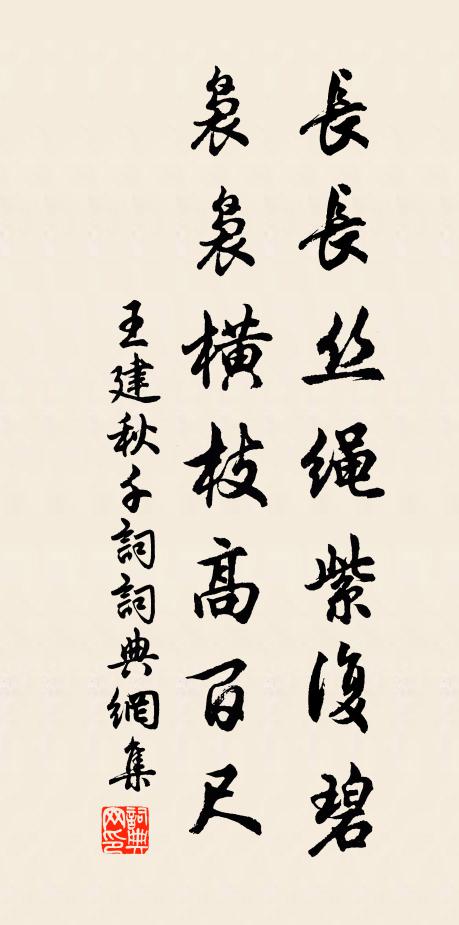 長長丝绳紫復碧
袅袅橫枝高百尺
王建秋千詞詞典網集
詞典网印